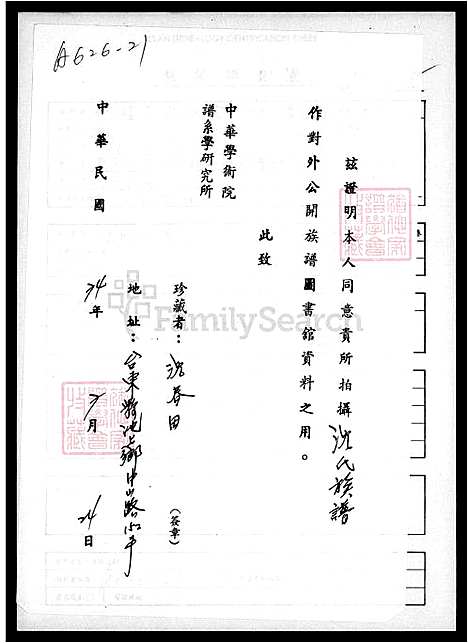 A626-21
茲證明本人同意貴所拍攝沈氏族譜
作對外公開族譜圖書館資料之用。
此致
中華學術院
譜系學研究所
珍藏者：沈春田（簽章）
地址：台東縣池上鄉中山路
中華民國74年3月24日
FamilySearch